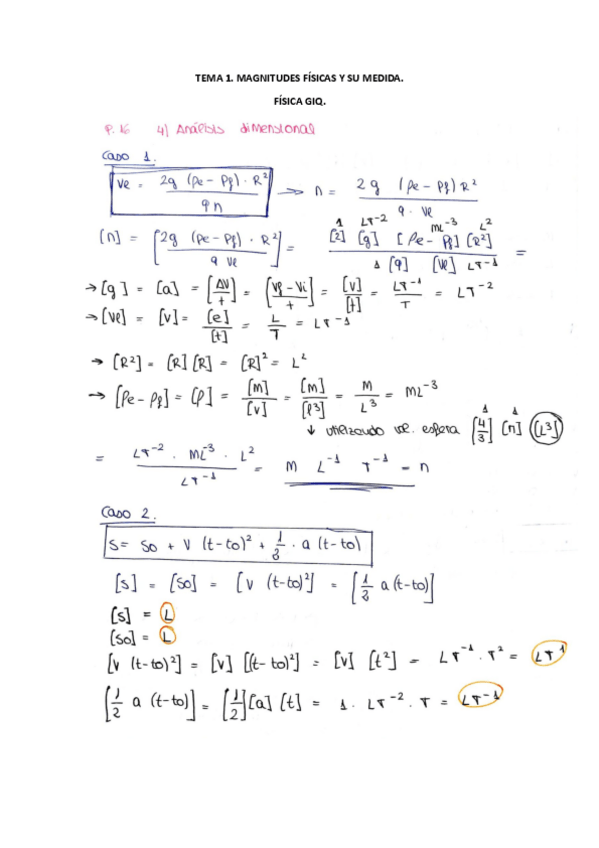 TEMA 1. MAGNITUDES FÍSICAS Y SU MEDIDA.
FÍSICA GIQ.
P. 16 4) Análisis dimensional
Caso 1.
Ve = 2g (ρe - ρf) · R² / 9 η → η = 2g (ρe - ρf) R² / 9 · Ve
[η] = [2g (ρe - ρf) · R² / 9 Ve] = [2] [g] [ρe - ρf] [R²] / [9] [Ve] =
1 LT⁻² ML⁻³ L²
1 LT⁻¹
→ [g] = [a] = [ΔV / t] = [Vf - Vi / t] = [V] / [t] = LT⁻¹ / T = LT⁻²
→ [Ve] = [V] = [e] / [t] = L / T = LT⁻¹
→ [R²] = [R] [R] = [R]² = L²
→ [ρe - ρf] = [ρ] = [m] / [V] = [m] / [l³] = M / L³ = ML⁻³
1 1
↓ utilizando ve. esfera [4/3] [π] [L³]
= LT⁻² · ML⁻³ · L² / LT⁻¹ = M L⁻¹ T⁻¹ = η
Caso 2.
S = So + V (t-to)² + 1/2 · a (t-to)
[S] = [So] = [V (t-to)²] = [1/2 a (t-to)]
[S] = L
[So] = L
[V (t-to)²] = [V] [(t-to)²] = [V] [t²] = LT⁻¹ · T² = LT¹
[1/2 a (t-to)] = [1/2] [a] [t] = 1 · LT⁻² · T = LT⁻¹